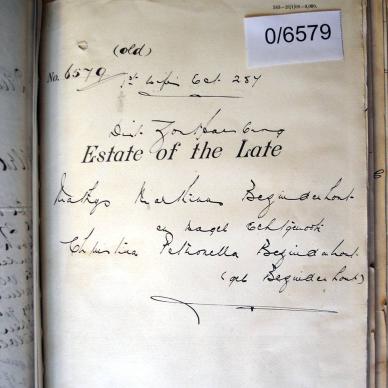 0/6579
(old)
No. 6579
Estate of the Late
Mathys Marthinus Bezuidenhout
en nagel. Echtgenoote
Christina Petronella Bezuidenhout
(geb Bezuidenhout)